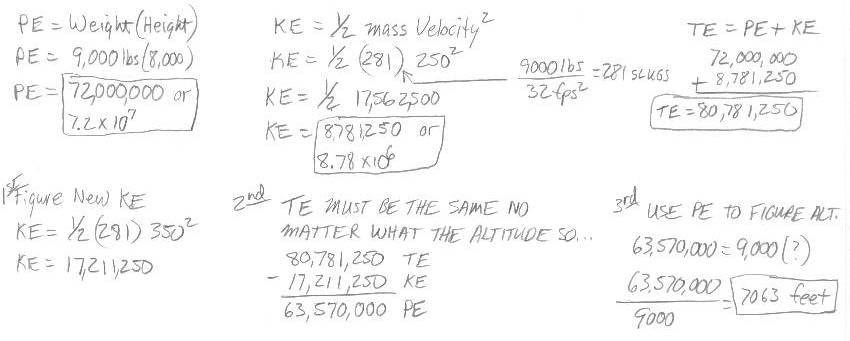 PE = Weight (Height)
PE = 9,000 lbs (8,000)
PE = 72,000,000 or
7.2 x 10^7
KE = 1/2 mass Velocity^2
KE = 1/2 (281) 250^2
KE = 1/2 17,562,500
KE = 8,781,250 or
8.78 x 10^6
9000 lbs
32 fps^2
= 281 SLUGS
TE = PE + KE
72,000,000
+ 8,781,250
TE = 80,781,250
1st Figure New KE
KE = 1/2 (281) 350^2
KE = 17,211,250
2nd TE MUST BE THE SAME NO
MATTER WHAT THE ALTITUDE SO...
80,781,250 TE
- 17,211,250 KE
63,570,000 PE
3rd USE PE TO FIGURE ALT.
63,570,000 = 9,000 (?)
63,570,000
9000
= 7063 feet